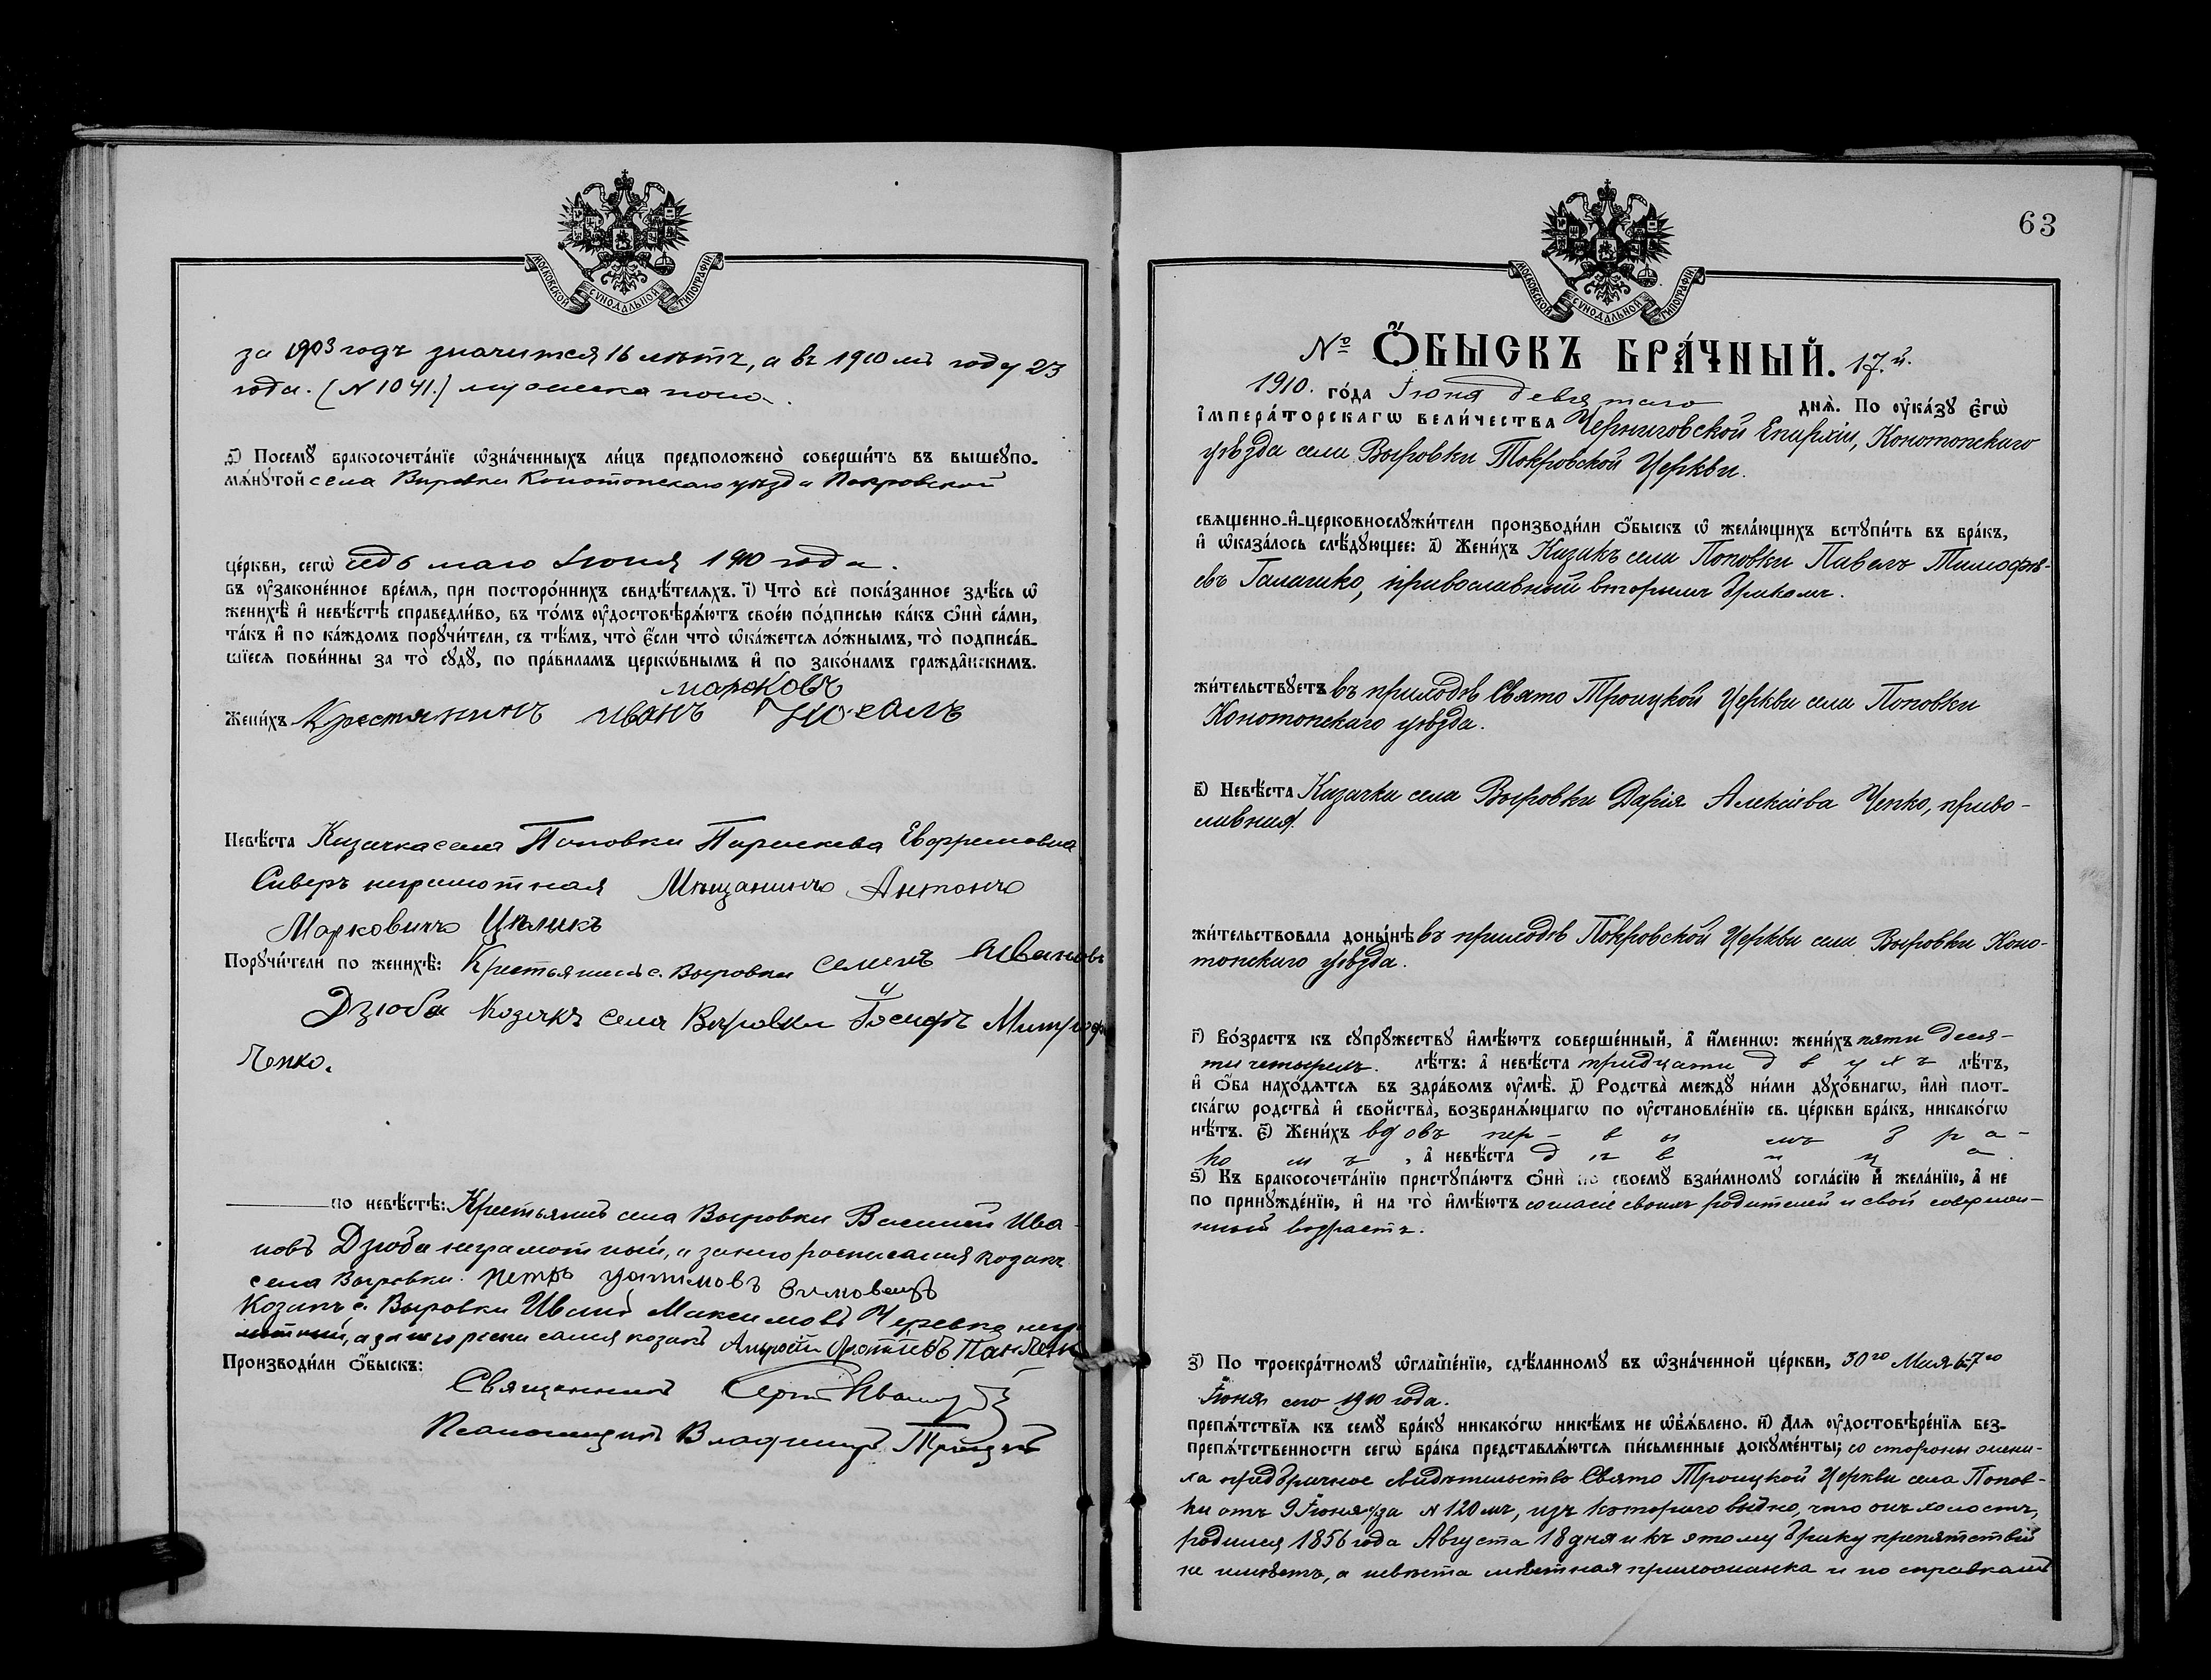 МОСКОВСКОЙ СѴНОДАЛЬНОЙ ТИПОГРАФІИ
за 1903 годъ значится 16 лѣтъ, а въ 1910 мъ году 23
года. (N 1041.)
д҃) Посемꙋ бракосочета́нїе ѡ҆зна́ченныхъ ли́цъ предположено̀ соверши́ть въ вышеꙋпо-
мѧ́нꙋтой села Выровки Конотопскаго уѣзда Покровской
це́ркви, сегѡ̀ седьмаго Іюня 1910 года.
въ ᲂу҆зако́ненное вре́мѧ, при посторо́ннихъ свидѣ́телѧхъ. і҃) Что̀ всѐ пока́занное здѣ́сь ѡ҆
женихѣ̀ и҆ невѣ́стѣ справедли́во, въ то́мъ ᲂу҆достовѣрѧ́ютъ свое́ю по́дписью ка́къ ѻ҆нѝ са́ми,
та́къ и҆ по ка́ждомъ порꙋчи́тели, съ тѣ́мъ, что̀ є҆́сли что̀ ѡ҆ка́жетсѧ ло́жнымъ, то̀ подписа́в-
шїесѧ пови́нны за то̀ сꙋдꙋ̀, по пра́виламъ церко́внымъ и҆ по зако́намъ гражда́нскимъ.
марковъ
Жени́хъ Крестянинъ иванъ
Невѣ́ста Казачка села Поповки Параскева Евфремовна
Сиверъ неграмотная Мѣщанинъ Антонъ
Марковичъ Цѣликъ
Порꙋчи́тели по женихѣ̀: Крестьянинъ с. Выровки Семенъ Ивановъ
Дзюба Козакъ села Выровки Іосифъ Митроф
Чепко.
по невѣ́стѣ: Крестьянинъ села Выровки Василій Ива-
новъ Дзюба неграмотный, а за него росписался козакъ
села Выровки. Петръ Устимовъ Зимовецъ
Козакъ с. Выровки Иванъ Максимовъ Черевко негра
мотный, а за него росписался козакъ
Производи́ли ѻ҆́быскъ:
Священникъ
Псаломщикъ Владиміръ Троицкій
63
МОСКОВСКОЙ СѴНОДАЛЬНОЙ ТИПОГРАФІИ
№ Ѻ҆́БЫСКЪ БРА́ЧНЫЙ. 17.й.
1910. го́да Іюня девятаго днѧ̀. По ᲂу҆ка́зꙋ є҆гѡ̀
і҆мпера́торскагѡ вели́чества Черниговской Епархіи, Конотопскаго
уѣзда села Выровки Покровской Церкви.
свѧщенно-и҆-церковнослꙋжи́тели производи́ли ѻ҆́быскъ ѡ҆ жела́ющихъ встꙋпи́ть въ бра́къ,
и҆ ѡ҆каза́лось слѣ́дꙋющее: а҃) Жени́хъ Казакъ села Поповки Павелъ Тимофѣ-
евъ Галашко, православный вторымъ бракомъ.
жи́тельствꙋетъ въ приходѣ Свято Троицкой Церкви села Поповки
Конотопскаго уѣзда.
в҃) Невѣ́ста Казачка села Выровки Дарія Алексіева Чепко, право-
славная.
жи́тельствовала доны́нѣ въ приходѣ Покровской Церкви села Выровки Коно-
топскаго уѣзда.
г҃) Во́зрастъ къ сꙋпрꙋ́жествꙋ и҆мѣ́ютъ соверше́нный, а҆ и҆́меннѡ: жени́хъ пяти деся-
ти четырехъ. лѣ́тъ: а҆ невѣ́ста тридцати двухъ лѣ́тъ,
и҆ ѻ҆́ба нахо́дѧтсѧ въ здра́вомъ ᲂу҆мѣ̀. д҃) Родства̀ междꙋ̀ ни́ми дꙋхо́внагѡ, и҆лѝ плот-
ска́гѡ родства̀ и҆ свойства̀, возбранѧ́ющагѡ по ᲂу҆становле́нїю св. це́ркви бра́къ, никако́гѡ
нѣ́тъ. є҃) Жени́хъ вдовъ первымъ бра-
комъ, а҆ невѣ́ста дѣвица.
ѕ҃) Къ бракосочета́нїю пристꙋпа́ютъ ѻ҆нѝ по своемꙋ̀ взаи́мномꙋ согла́сїю и҆ жела́нїю, а҆ не
по принꙋжде́нїю, и҆ на то̀ и҆мѣ́ютъ согласіе своихъ родителей и свой совершен-
нный возрастъ.
з҃) По троекра́тномꙋ ѡ҆глаше́нїю, сдѣ́ланномꙋ въ ѡ҆зна́ченной це́ркви, 30го Мая 6-7го
Іюня сего 1910 года.
препѧ́тствїѧ къ семꙋ̀ бра́кꙋ никако́гѡ никѣ́мъ не ѡ҆б̾ѧ́влено. и҃) Длѧ ᲂу҆достовѣре́нїѧ без-
препѧ́тственности сегѡ̀ бра́ка представлѧ́ютсѧ пи́сьменные докꙋме́нты; со стороны жени-
ха предбрачное свидѣтельство Свято Троицкой Церкви села Попов-
ки отъ 9 Іюня с/г за N 120 мъ, изъ котораго видно, что онъ холостъ,
родился 1856 года Августа 18 дня и къ этому браку препятствій
не имѣетъ, а невѣста мѣстная прихожанка и по справкамъ